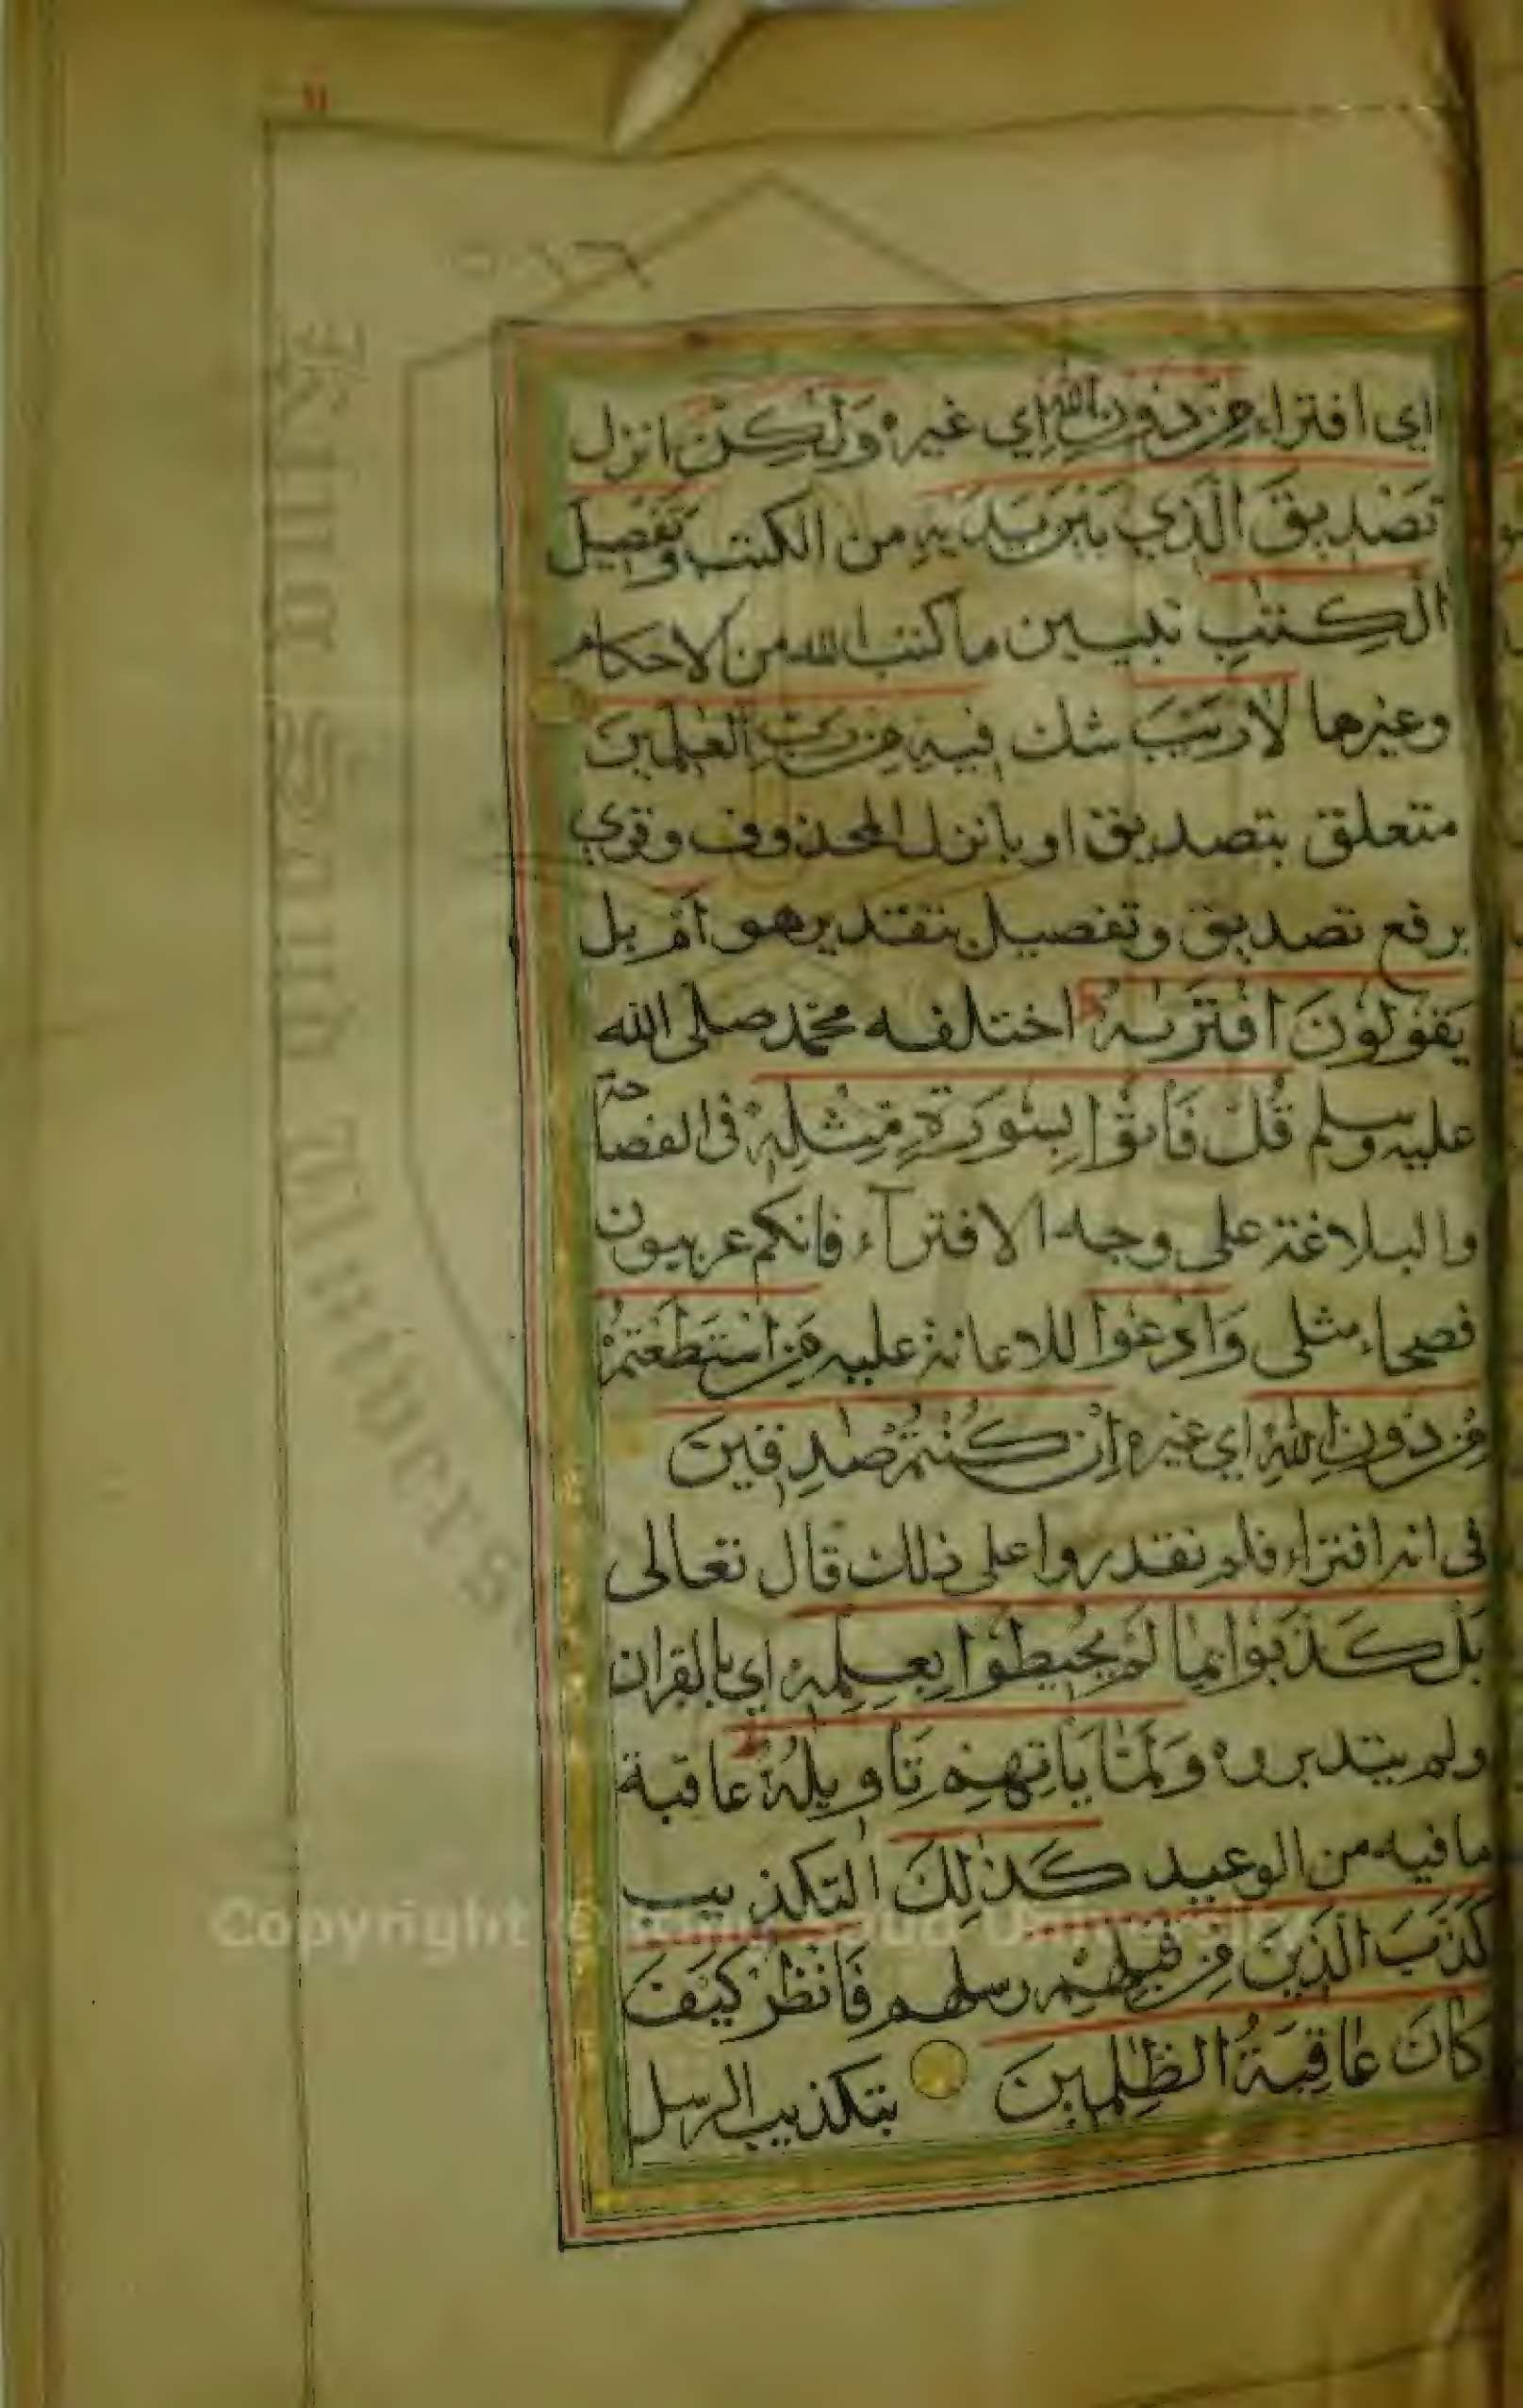 اي افتراء مِنْ دُونِ اللهِ اي غيره وَلٰكِنْ انزل
تَصْدِيقَ الَّذِي بَيْنَ يَدَيْهِ من الكتب وَتَفْصِيلَ
الْكِتٰبِ تبيين ما كتب الله من الاحكام
وغيرها لَا رَيْبَ شك فِيهِ مِنْ رَبِّ الْعٰلَمِينَ
متعلق بتصديق او بانزل المحذوف وقري
برفع تصديق وتفصيل بتقدير هو اَمْ بل
يَقُولُونَ افْتَرٰىهُ اختلفه محمد صلى الله
عليه وسلم قُلْ فَأْتُوا بِسُورَةٍ مِثْلِهِ في الفصاحة
والبلاغة على وجه الافترآء فانكم عربيون
فصحاء مثلي وَادْعُوا للاعانة عليه مَنِ اسْتَطَعْتُمْ
مِنْ دُونِ اللهِ اي غيره اِنْ كُنْتُمْ صٰدِقِينَ
في انه افتراء فلم تقدروا على ذلك قال تعالى
بَلْ كَذَّبُوا بِمَا لَمْ يُحِيطُوا بِعِلْمِهِ اي بالقران
ولم يتدبروه وَلَمَّا يَأْتِهِمْ تَأْوِيلُهُ عاقبة
ما فيه من الوعيد كَذٰلِكَ التكذيب
كَذَّبَ الَّذِينَ مِنْ قَبْلِهِمْ رسلهم فَانْظُرْ كَيْفَ
كَانَ عَاقِبَةُ الظّٰلِمِينَ بتكذيب الرسل
Copyright © King Saud University